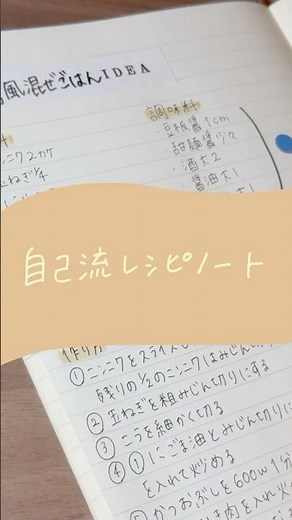 風混ぜごはんIDEA
調味料
・豆板醤1cm
・甜麺醤少々
・酒大2
・醤油大1
ニンニク2カケ
玉ねぎ1/4
自己流レシピノート
作り方
①ニンニクをスライスし
残りの1/2のニンニクはみじん切り
②玉ねぎを粗みじん切りにする
③ニラを細かく切る
④①にごま油とみじん切りに
を入れて炒める
かつおぶしを600w1分
肉を入れ